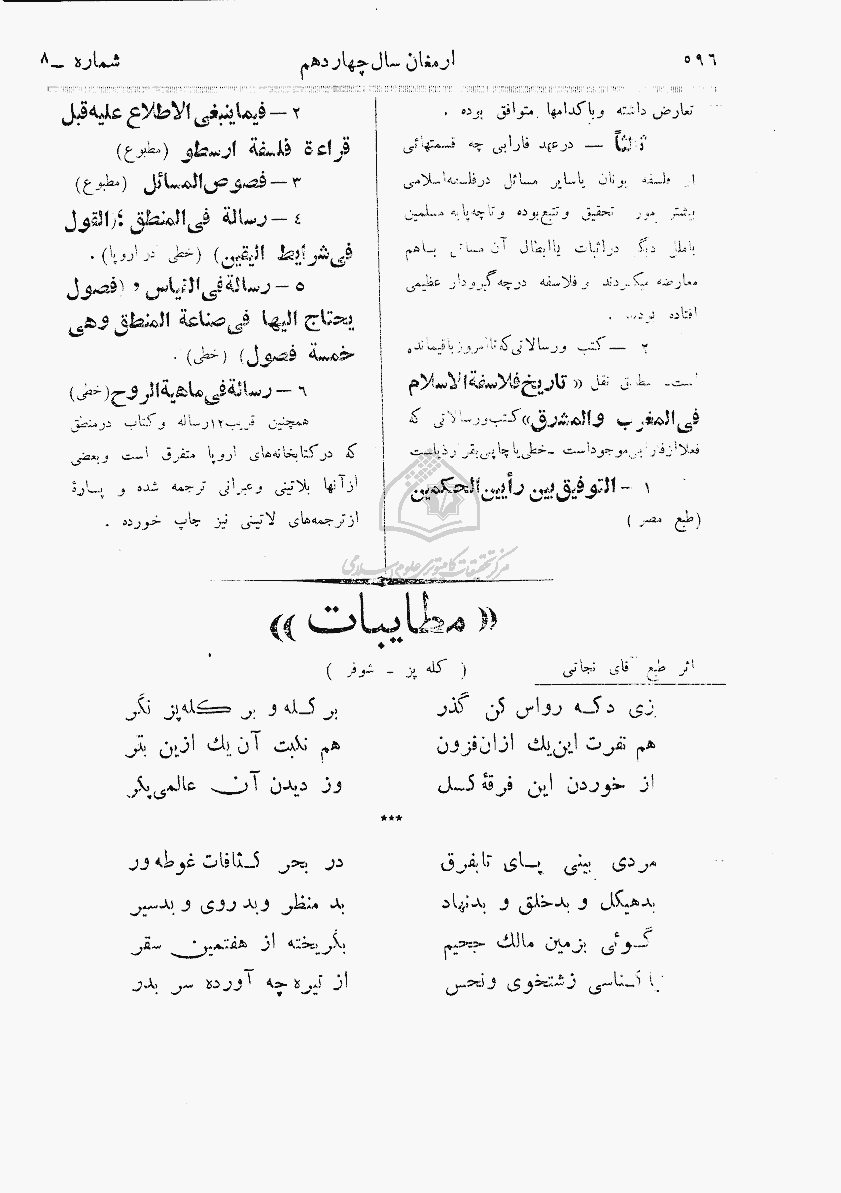 ٥٩٦ ارمغان سال چهاردهم شماره ــ ٨
تعارض داشته و باکدامها متوافق بوده .
ثالثاً — درعهد فارابی چه قسمتهائی
از فلسفه یونان یاسایر مسائل درفلسفه اسلامی
بیشتر مورد تحقیق و تتبع بوده و تاچه پایه مسلمین
باملل دیگر دراثبات یاابطال آن مسائل باهم
معارضه میکردند و فلاسفه درچه گیرودار عظیمی
افتاده بودند .
٢ — کتب ورسالاتی که تاامروز باقیمانده
است مطابق نقل «تاریخ فلاسفة الاسلام
فی المغرب والمشرق» کتب ورسالاتی که
فعلا ازفارابی موجوداست ـ خطی یاچاپی بقرارذیلست
١ – التوفیق بین رأیین الحکمین
(طبع مصر)
٢ – فیماینبغی الاطلاع علیه قبل
قراءة فلسفة ارسطو (مطبوع)
٣ – فصوص المسائل (مطبوع)
٤ – رسالة فی المنطق (القول
فی شرایط الیقین) (خطی در اروپا) .
٥ – رسالة فی القیاس و (فصول
یحتاج الیها فی صناعة المنطق وهی
خمسة فصول) (خطی) .
٦ – رسالة فی ماهیة الروح (خطی)
همچنین قریب ١٢ رساله وکتاب درمنطق
که درکتابخانه‌های اروپا متفرق است وبعضی
ازآنها بلاتینی وعبرانی ترجمه شده و پسارهٔ
ازترجمه‌های لاتینی نیز چاپ خورده .
مرکز تحقیقات کامپیوتری علوم اسلامی
«مطایبات»
اثر طبع آقای نجاتی (کله پز ـ شوفر)
زی دکه رواس کن گذر بر کله و بر کله‌پز نگر
هم نفرت این یك ازان فزون هم نکبت آن یك ازین بتر
از خوردن این فرقهٔ کسل وز دیدن آن عالمی پکر
***
مردی بینی پای تابفرق در بحر کثافات غوطه ور
بدهیکل و بدخلق و بدنهاد بد منظر وبد روی و بدسیر
گوئی بزمین مالك جحیم بگریخته از هفتمین سقر
یا کناسی زشتخوی ونحس از تیره چه آورده سر بدر